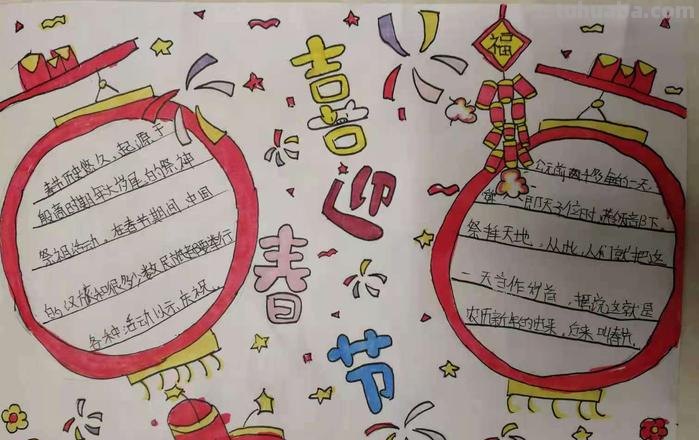 tuhuaba.com
福
喜迎
春节
春节历史悠久,起源于
殷商时期年头岁尾的祭神
祭祖活动。在春节期间,中国
的汉族和很多少数民族都要举行
各种活动以示庆祝。
公元前两千多年的一天,
舜即天子位时,带领着部下,
祭拜天地,从此,人们就把这
一天当作岁首,据说这就是
农历新年的由来,后来叫春节。